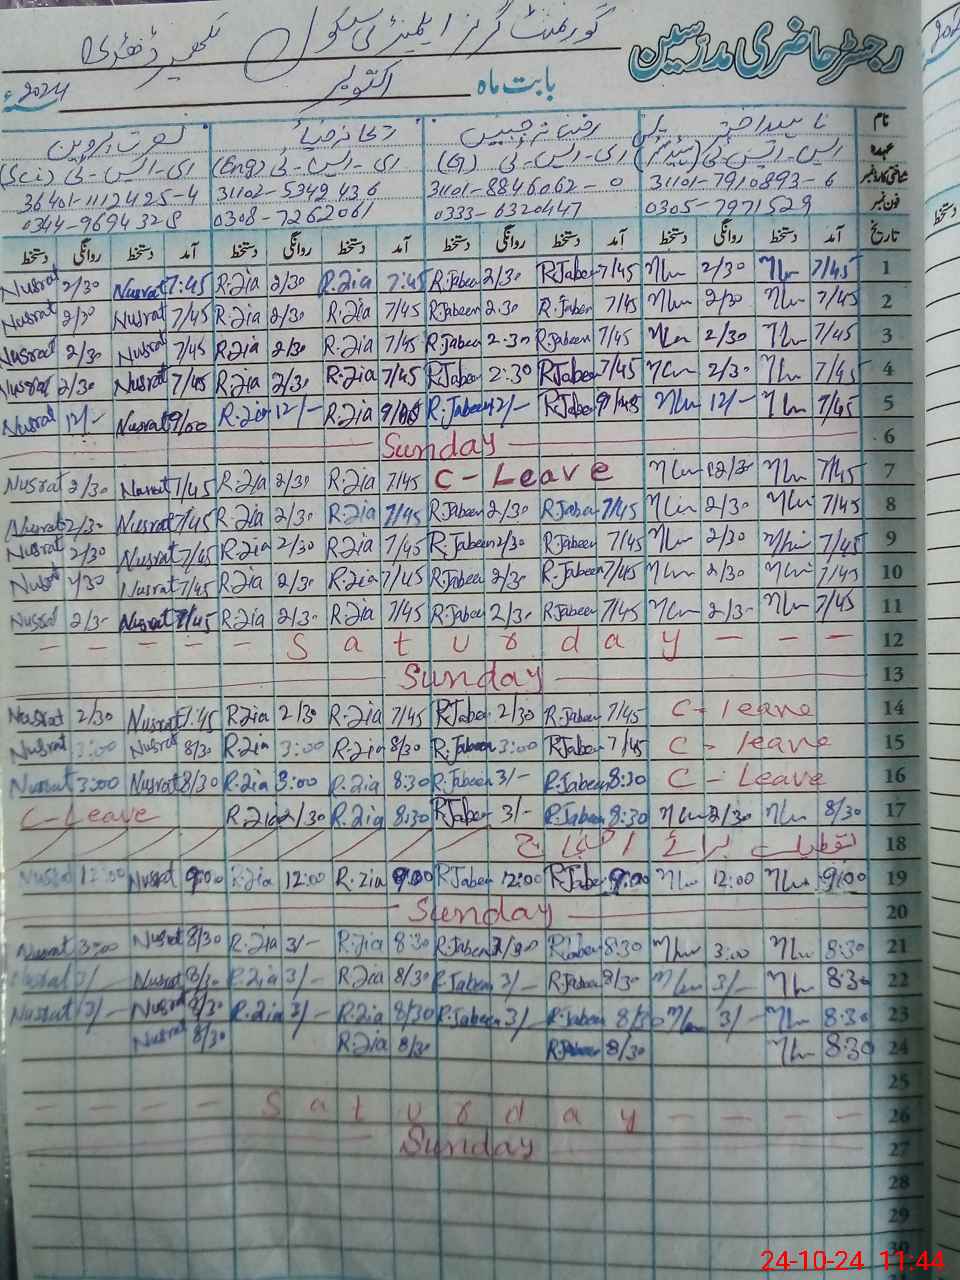 رجسٹر حاضری مدرسین
گورنمنٹ گرلز ایلیمنٹری سکول
بابت ماہ اکتوبر 2024ء
نام ناہید اختر رفعت جبیں نصرت پروین
عہدہ ای-ایس-ٹی (G) ای-ایس-ٹی (Eng) ای-ایس-ٹی (Sci)
شناختی کارڈ نمبر 31101-7910893-6 31101-8846062-0 31102-5349436 36401-1112425-4
فون نمبر 0305-7971529 0333-6320447 0308-7262061 0344-9694328
تاریخ آمد دستخط روانگی دستخط آمد دستخط روانگی دستخط آمد دستخط روانگی دستخط آمد دستخط روانگی دستخط
1 7/45 2/30 7/45 R.Jabeen 2/30 R.Jabeen 7:45 R.Zia 2/30 R.Zia 7:45 Nusrat 2/30 Nusrat
2 7/45 2/30 7/45 R.Jabeen 2.30 R.Jabeen 7/45 R.Zia 2/30 R.Zia 7/45 Nusrat 2/30 Nusrat
3 7/45 2/30 7/45 R.Jabeen 2.30 R.Jabeen 7/45 R.Zia 2/30 R.Zia 7/45 Nusrat 2/30 Nusrat
4 7/45 2/30 7/45 R.Jabeen 2:30 R.Jabeen 7/45 R.Zia 2/30 R.Zia 7/45 Nusrat 2/30 Nusrat
5 7/45 12/- R.Jabeen 12/- R.Jabeen R.Zia 12/- R.Zia 9/00 Nusrat 12/- Nusrat
6 Sunday
7 7/45 C-Leave 7/45 R.Zia 2/30 R.Zia 7/45 Nusrat 2/30 Nusrat
8 7/45 2/30 7/45 R.Jabeen 2/30 R.Jabeen 7/45 R.Zia 2/30 R.Zia 7/45 Nusrat 2/30 Nusrat
9 7/45 2/30 7/45 R.Jabeen 2/30 R.Jabeen 7/45 R.Zia 2/30 R.Zia 7/45 Nusrat 2/30 Nusrat
10 7/45 2/30 7/45 R.Jabeen 2/30 R.Jabeen 7/45 R.Zia 2/30 R.Zia 7/45 Nusrat Nusrat
11 7/45 2/30 7/45 R.Jabeen 2/30 R.Jabeen 7/45 R.Zia 2/30 R.Zia 7/45 Nusrat 2/30 Nusrat
12 Saturday
13 Sunday
14 C-leave 7/45 R.Jabeen 2/30 R.Jabeen 7/45 R.Zia 2/30 R.Zia 7:45 Nusrat 2/30 Nusrat
15 C-leave 7/45 R.Jabeen 3:00 R.Jabeen 8/30 R.Zia 3:00 R.Zia 8/30 Nusrat 3:00 Nusrat
16 C-Leave 8:30 R.Jabeen 3/- R.Jabeen 8:30 R.Zia 3:00 R.Zia 8/30 Nusrat 3:00 Nusrat
17 8/30 2/30 8:30 R.Jabeen 3/- R.Jabeen 8:30 R.Zia 2/30 R.Zia C-Leave
18 تعطیلات برائے احتجاج
19 9:00 12:00 9:00 R.Jabeen 12:00 R.Jabeen 9:00 R.Zia 12:00 R.Zia 9:00 Nusrat 12:00 Nusrat
20 Sunday
21 8:30 3:00 8:30 R.Jabeen R.Jabeen 8:30 R.Zia 3/- R.Zia 8/30 Nusrat 3:00 Nusrat
22 8:30 3/- 8/30 R.Jabeen 3/- R.Jabeen 8/30 R.Zia 3/- R.Zia 8/30 Nusrat 3/- Nusrat
23 8:30 3/- 8/30 R.Jabeen 3/- R.Jabeen 8/30 R.Zia 3/- R.Zia 8/30 Nusrat 3/- Nusrat
24 8:30 8/30 R.Jabeen 8/30 R.Zia 8/30 Nusrat
25
26 Saturday
27 Sunday
28
29
30
24-10-24 11:44